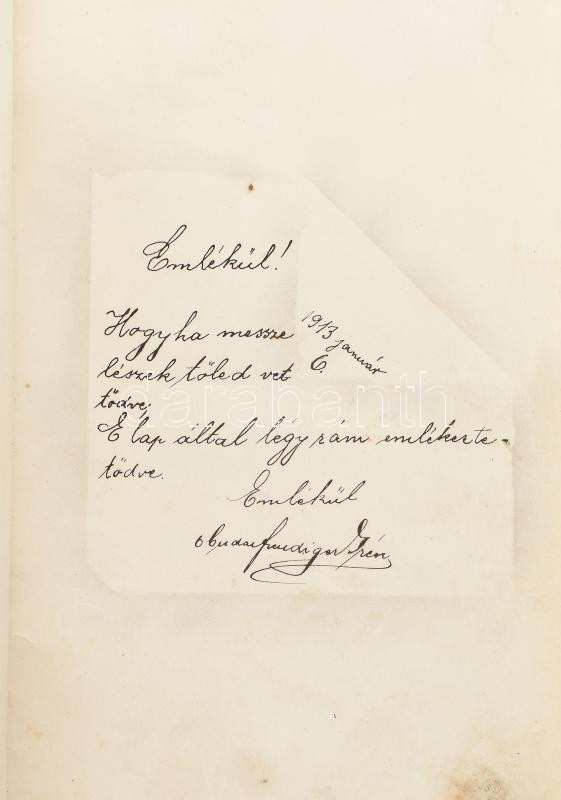 Emlékül!
1913 január
6.
Hogyha messze
lészek tőled vet
tődve;
E lap által légy rám emlékezte-
tődve.
Emlékül
Freudiger Irén
darabanth